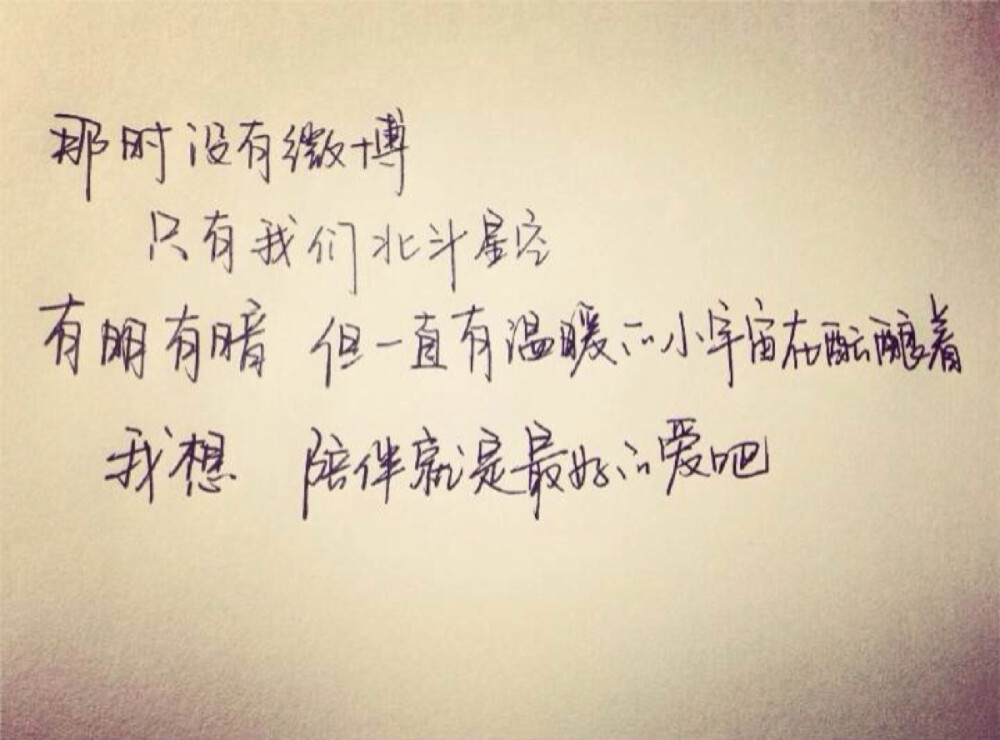 那时没有微博
只有我们北斗星空
有明有暗 但一直有温暖的小宇宙在酝酿着
我想 陪伴就是最好的爱吧